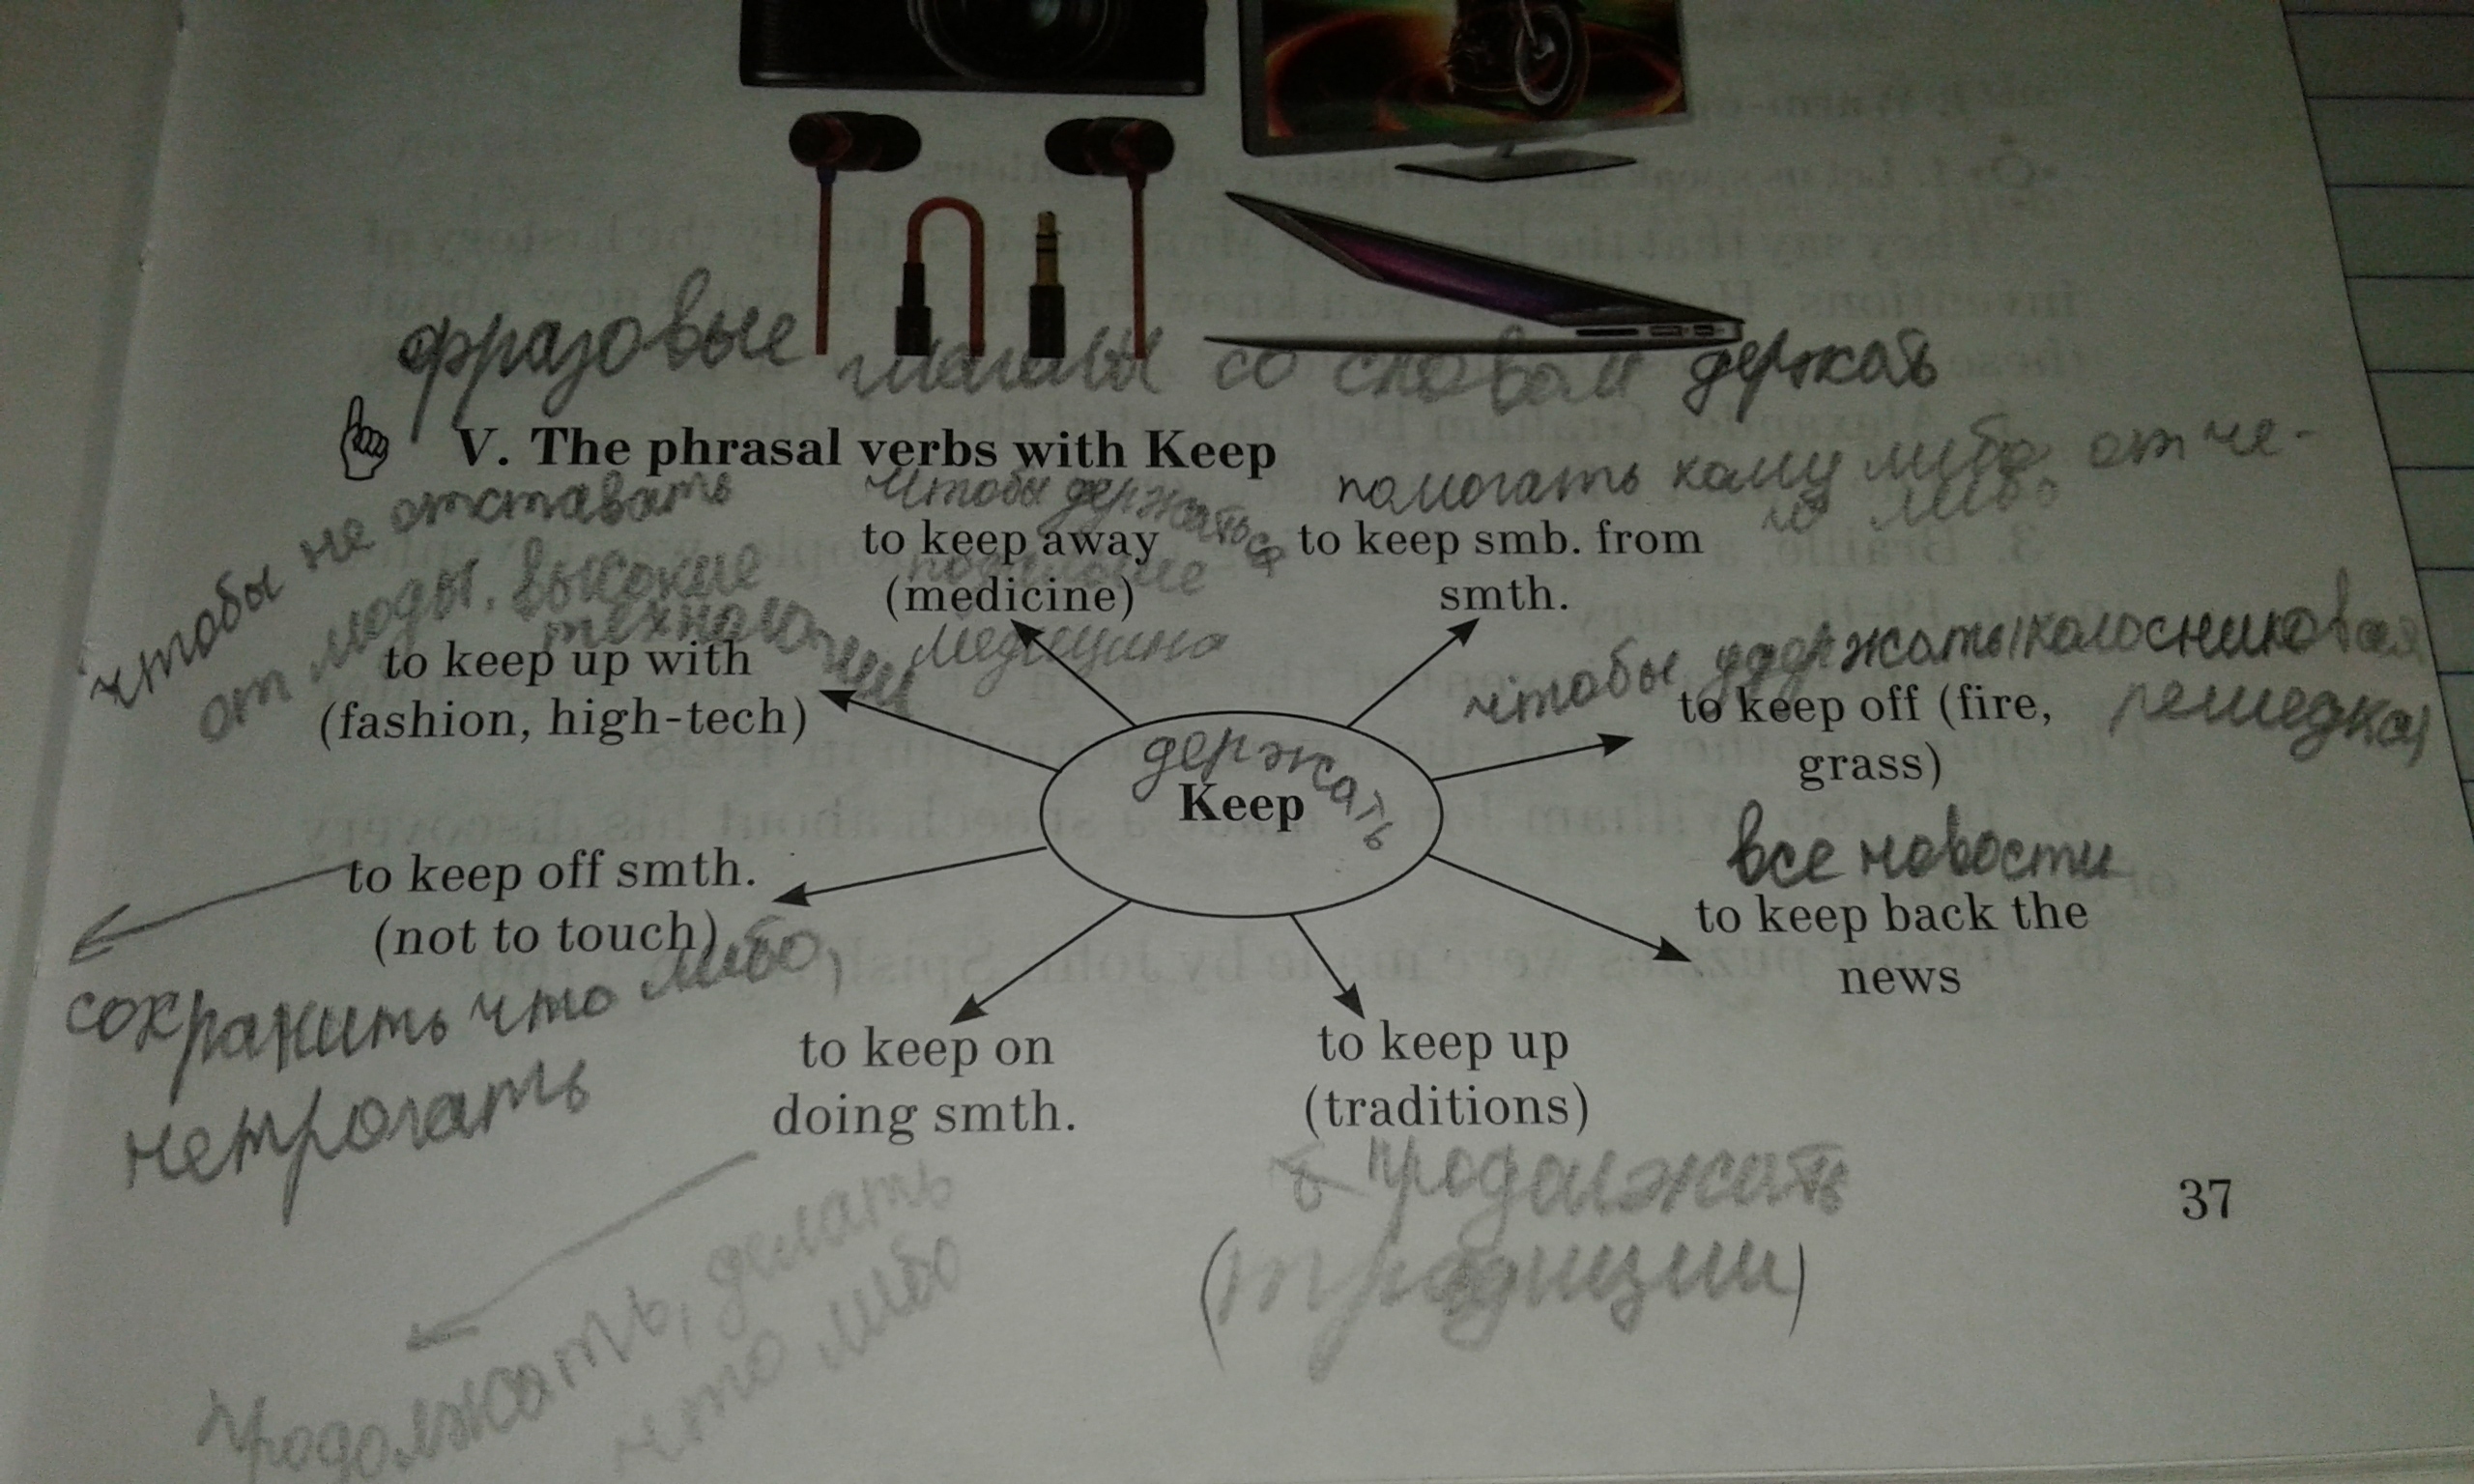 фразовые глаголы со словом держать
V. The phrasal verbs with Keep
чтобы не отставать
от моды, высокие
технологии
to keep up with
(fashion, high-tech)
Чтобы держаться
to keep away
подальше
(medicine)
медицина
помогать кому либо от че-
го либо
to keep smb. from
smth.
чтобы удержать(колосниковая
решетка)
to keep off (fire,
grass)
держать
Keep
все новости
to keep back the
news
to keep off smth.
(not to touch)
сохранить что либо,
нетрогать
to keep on
doing smth.
продолжать, делать
что либо
to keep up
(traditions)
продолжать
(традиции)
37